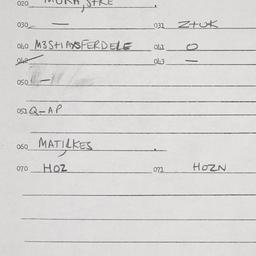 020 MURA, STRE
030 — 031 Z+UK
040 M3STIAYSFERDELE 041 O
042 043 —
050 —
051 Q-AP
060 MATILKES
070 HOZ 071 HOZN